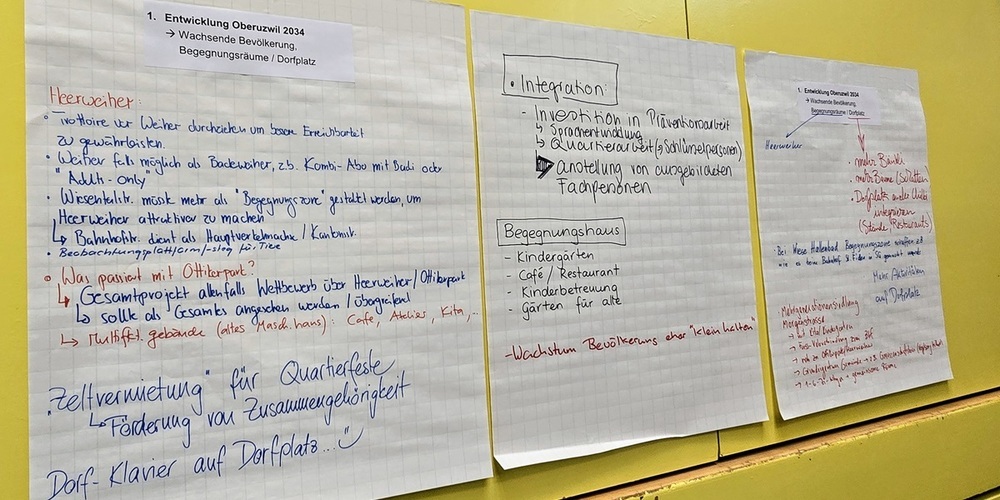 1. Entwicklung Oberuzwil 2034
→ Wachsende Bevölkerung,
Begegnungsräume / Dorfplatz
Heerweiher:
Trottoire vor Weiher durchziehen um bessere Erreichbarkeit
zu gewährleisten.
• Weiher falls möglich als Badeweiher, z.b. Kombi-Abo mit Badi oder
"Adult-Only"
• Wiesentalstr. müsste mehr als "Begegnungszone" gestaltet werden, um
Heerweiher attraktiver zu machen
↳ Bahnhofstr. dient als Hauptverkehrsachse / Kantonsstr.
• Beobachtungsplattform/-steg für Tiere
• Was passiert mit Ottikerpark?
↳ Gesamtprojekt allenfalls Wettbewerb über Heerweiher/Ottikerpark
↳ sollte als Gesamtes angesehen werden / übergreifend
↳ Multifkt. gebäude (altes Masch.haus): Café, Atelier, Kita,...
"Zeltvermietung" für Quartierfeste
↳ Förderung von Zusammengehörigkeit
Dorf-Klavier auf Dorfplatz...
• Integration:
- Investition in Präventionsarbeit
↳ Sprachentwicklung
↳ Quartierarbeit (→ Schlüsselpersonen)
Anstellung von ausgebildeten
Fachpersonen
Begegnungshaus
- Kindergärten
- Café / Restaurant
- Kinderbetreuung
- Gärten für alte
- Wachstum Bevölkerung eher "klein halten"
1. Entwicklung Oberuzwil 2034
→ Wachsende Bevölkerung,
Begegnungsräume / Dorfplatz
Heerweiher
• mehr Bänkli
• mehr Bäume (Schatten)
• Dorfplatz
integrieren
(Stände, Restaurants)
• Bei Wiese Hallenbad Begegnungszone schaffen
Mehr Aktivitäten
auf Dorfplatz
- Mehrgenerationensiedlung
Morgenstrasse